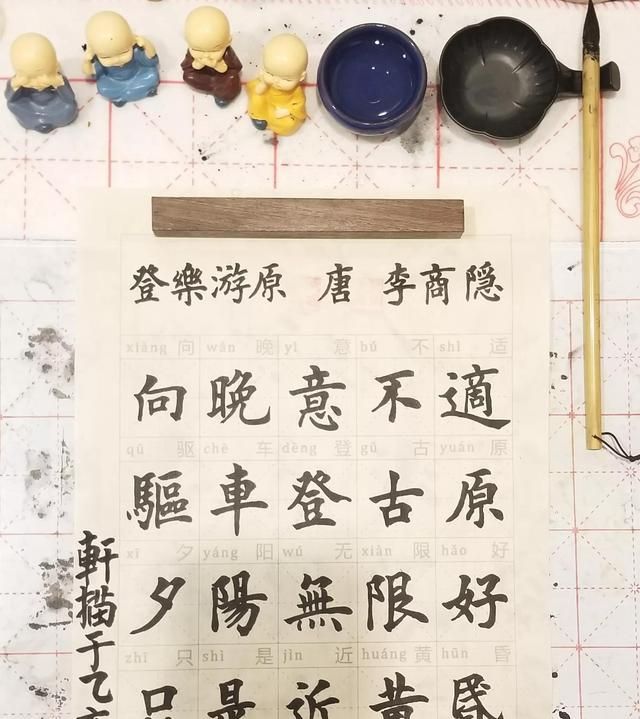 登樂游原 唐 李商隐
xiàng 向 wǎn 晚 yì 意 bú 不 shì 适
向晚意不適
qū 驱 chē 车 dēng 登 gǔ 古 yuán 原
驅車登古原
xī 夕 yáng 阳 wú 无 xiàn 限 hǎo 好
夕陽無限好
zhǐ 只 shì 是 jìn 近 huáng 黄 hūn 昏
只是近黄昏
軒描于乙